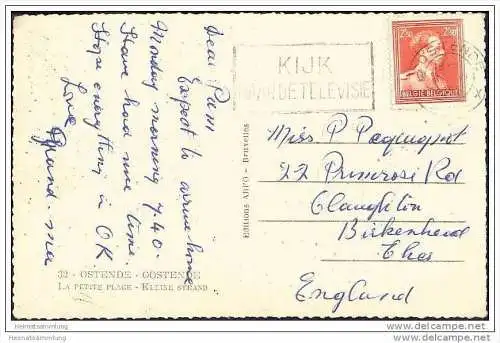 Dear Pam
Expect to arrive home
Monday morning 7.40.
Have had nice time.
Hope everything is OK
Love
Grand-ma
32 - OSTENDE - OOSTENDE
LA PETITE PLAGE - KLEINE STRAND
Editions ARPO - Bruxelles
KIJK
NAAR DE TELEVISIE
2F50
BELGIE-BELGIQUE
Miss P
22 Primrose Rd
Claughton
Birkenhead
Ches
England
Heimatsammlung
Heimatsammlung
delcampe.net